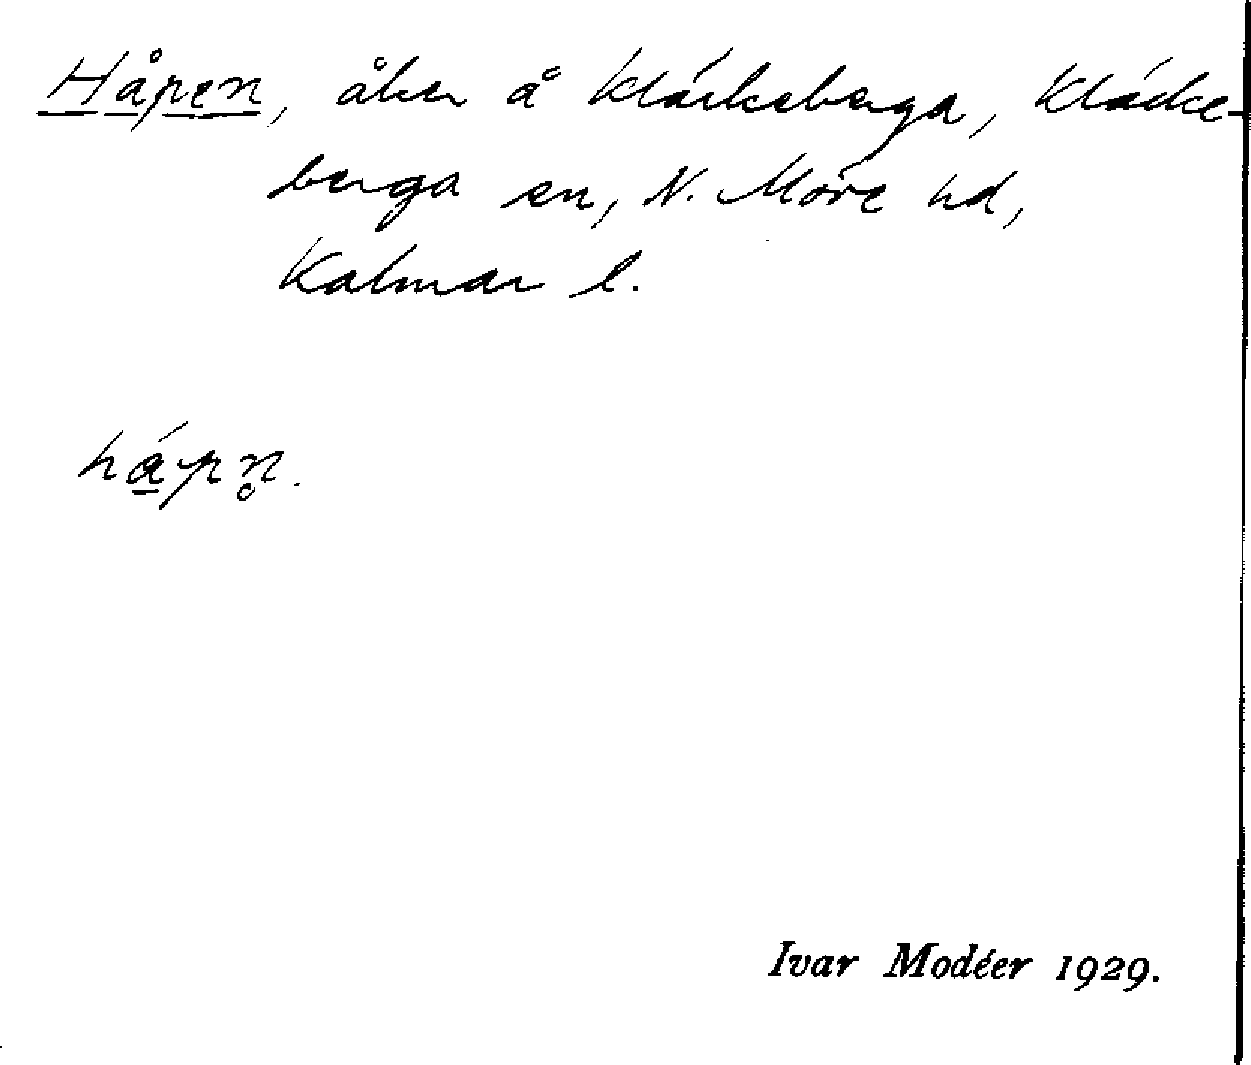 Håpen, åker å Kläckeberga, Kläcke-
berga sn, N. Möre hd,
Kalmar l.
hápn̥.
Ivar Modéer 1929.